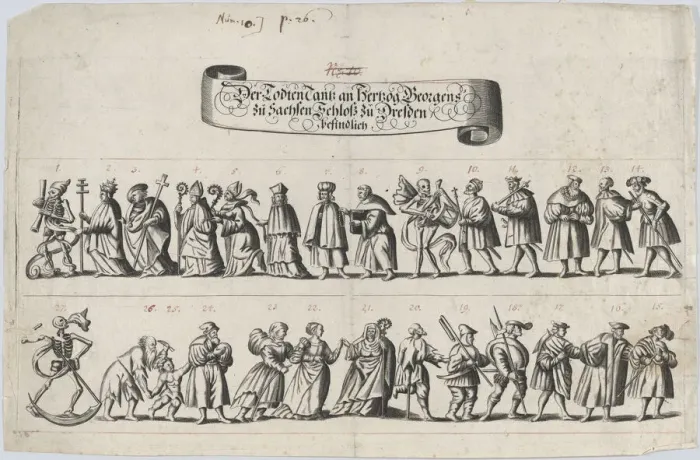 Núm. 10.] p. 26.
Der Todten Tantz an Hertzog Georgens
zu Sachsen Schloß zu Dresden
befindlich.
1. 2. 3. 4. 5. 6. 7. 8. 9. 10. 11. 12. 13. 14.
27. 26. 25. 24. 23. 22. 21. 20. 19. 18. 17. 16. 15.